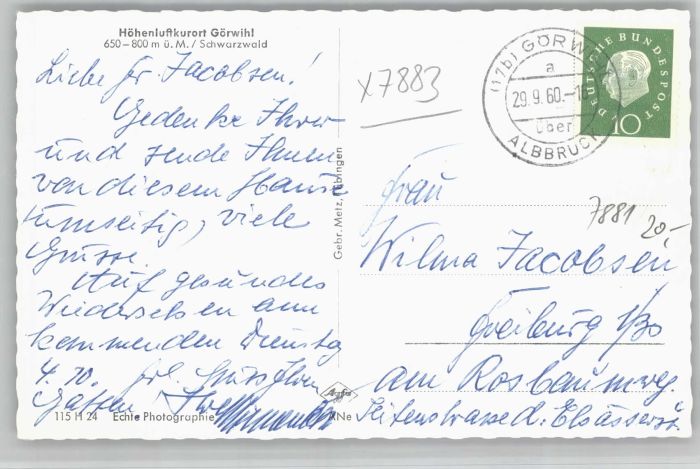 Höhenluftkurort Görwihl
650–800 m ü. M. / Schwarzwald
Liebe Fr. Jacobsen!
Gedenke Ihrer
und sende Ihnen
von diesem Hause
umseitig, viele
Grüsse.
Auf gesundes
Wiedersehen am
kommenden Dienstag
4.10. frl. Grüss Ihren
Gatten
115 H 24 Echte Photographie
Gebr. Metz, Tübingen
Agfa
x7883
(17b) GÖRWIHL
a
29.9.60.-18
über
ALBBRUCK
DEUTSCHE BUNDESPOST
10
7881 20.-
Frau
Wilma Jacobsen
Freiburg i/Br
am Rosbaumweg.
Seitenstrasse d. Elsässerstr.